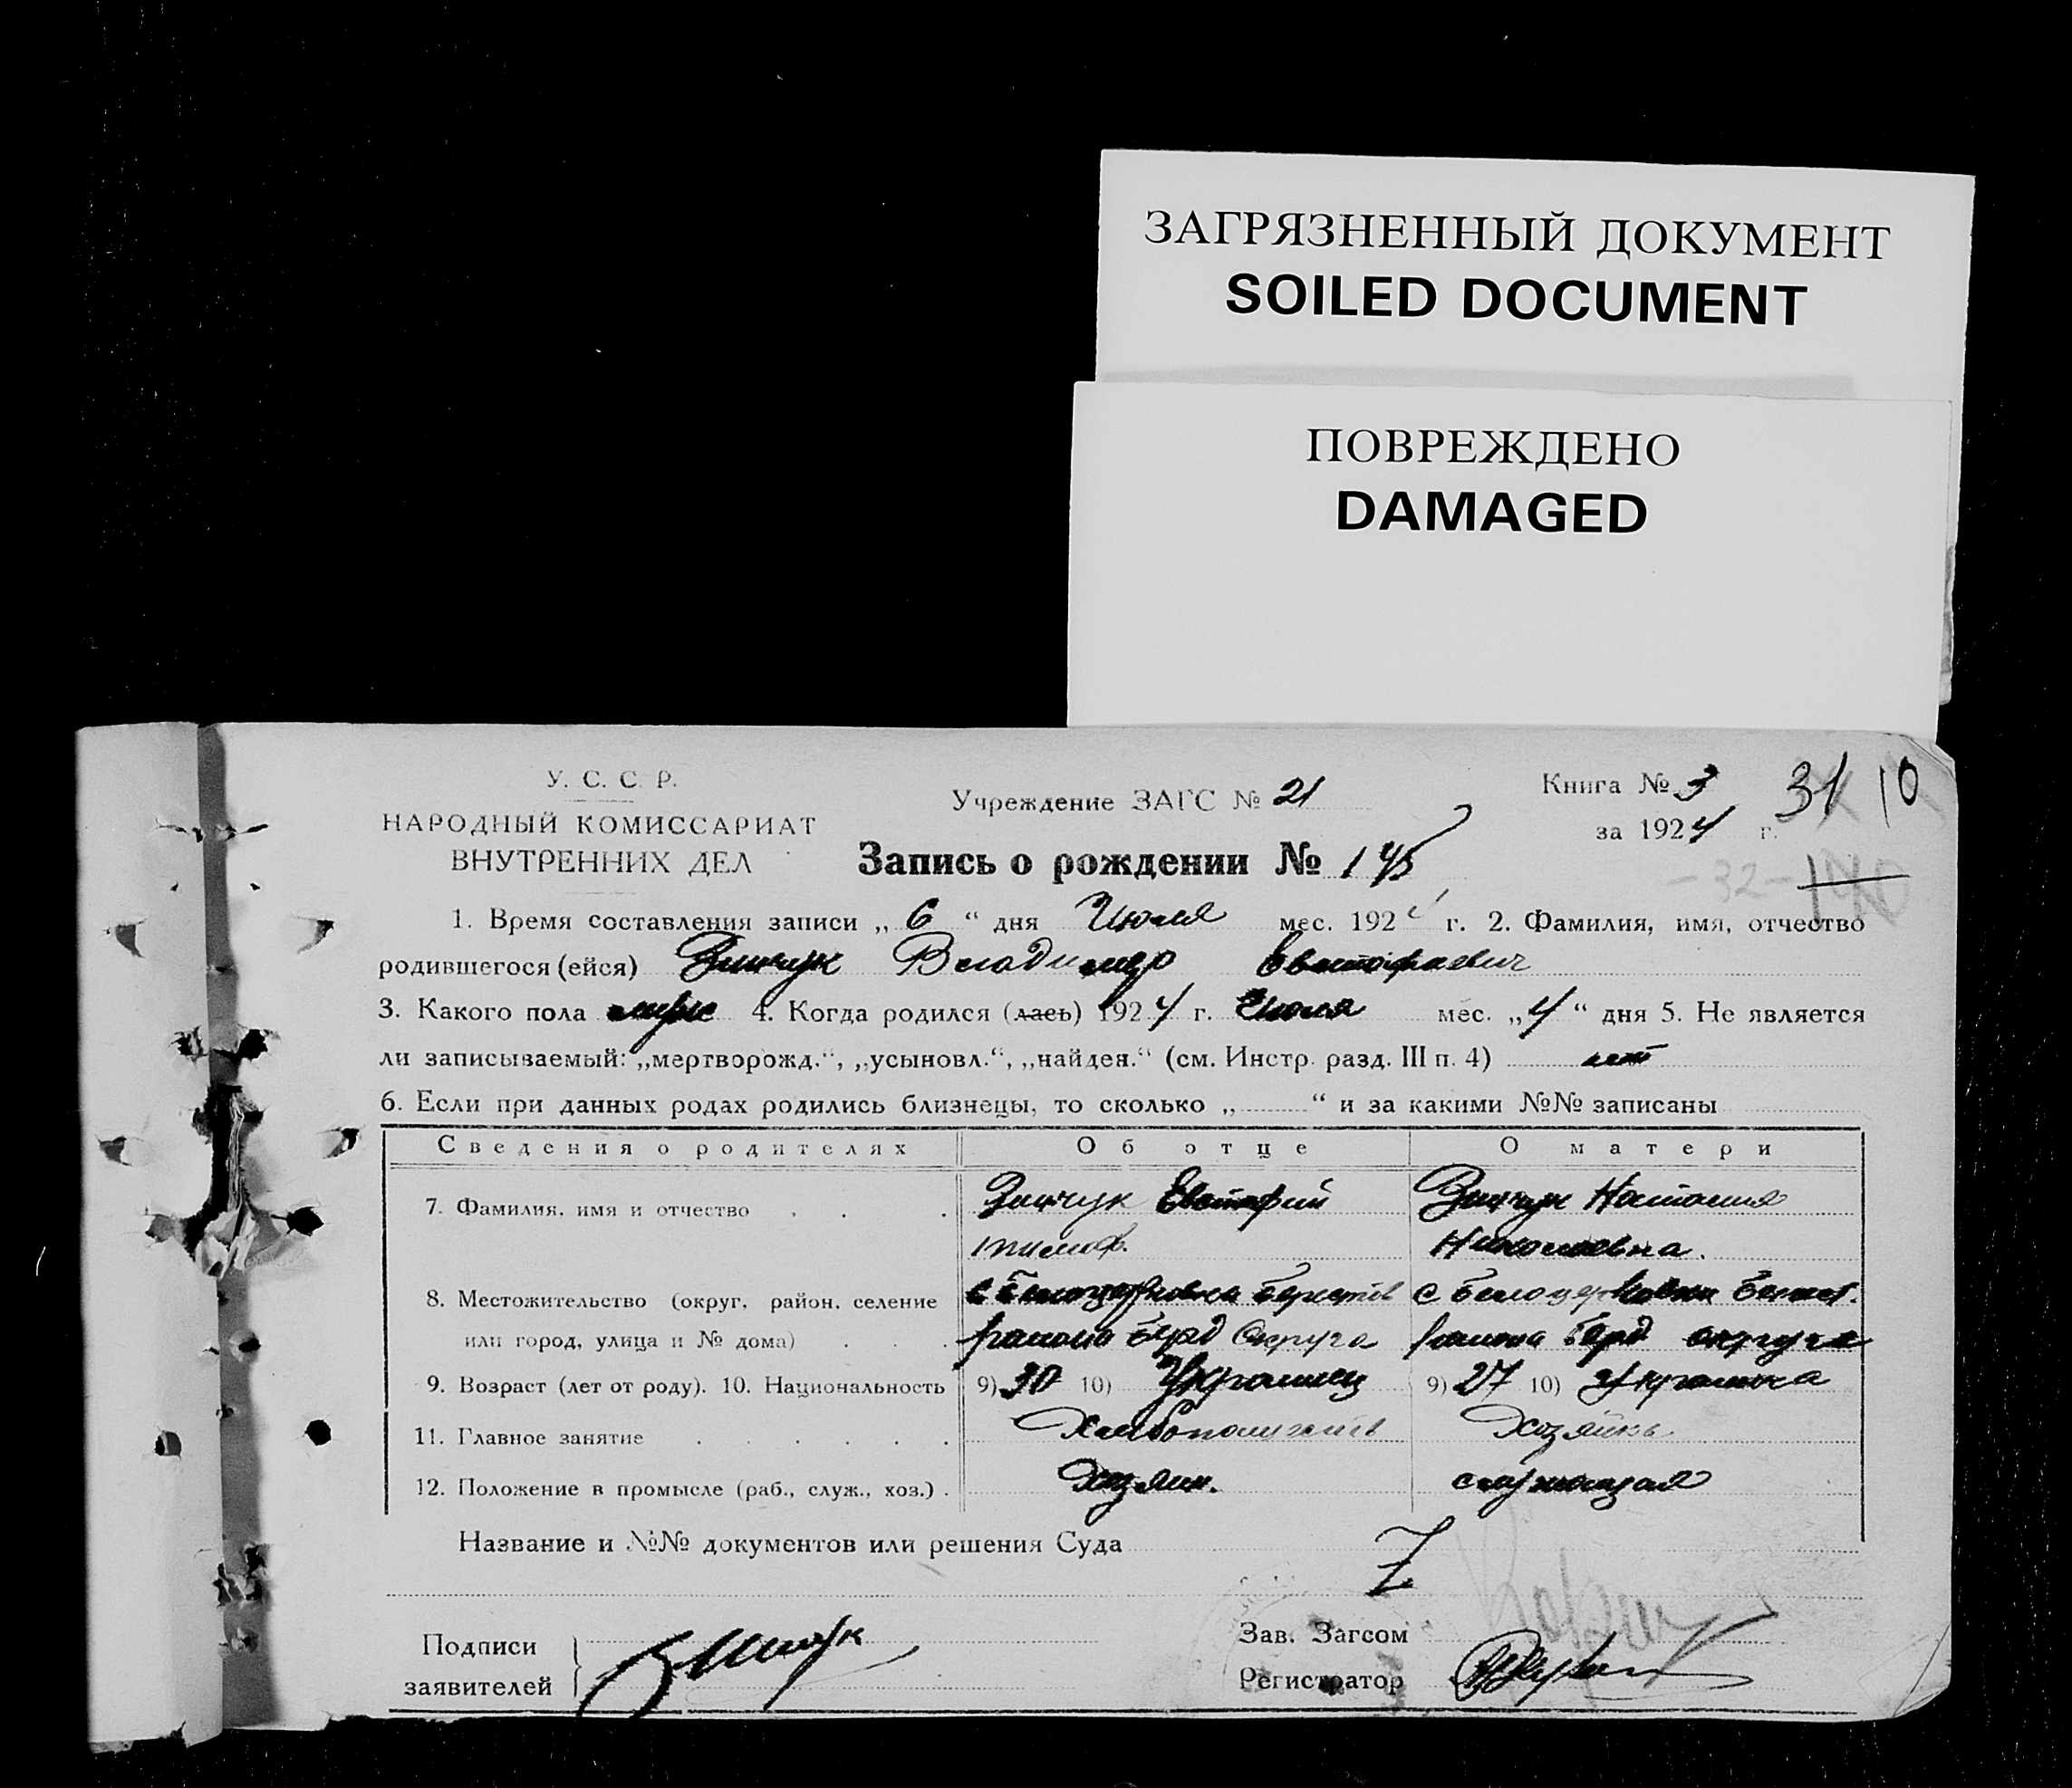 ЗАГРЯЗНЕННЫЙ ДОКУМЕНТ
SOILED DOCUMENT
ПОВРЕЖДЕНО
DAMAGED
У. С. С. Р.
НАРОДНЫЙ КОМИССАРИАТ
ВНУТРЕННИХ ДЕЛ
Учреждение ЗАГС № 21
Книга № 3
за 1924 г.
31 10
Запись о рождении № 145
- 32 -
1. Время составления записи „ 6 “ дня Июля мес. 1924 г. 2. Фамилия, имя, отчество
родившегося (ейся) Зинчук Владимир Евстафиевич
3. Какого пола муж 4. Когда родился (лась) 1924 г. Июля мес. „ 4 “ дня 5. Не является
ли записываемый: „мертворожд.“, „усыновл.“, „найден.“ (см. Инстр. разд. III п. 4) нет
6. Если при данных родах родились близнецы, то сколько „ “ и за какими №№ записаны
Сведения о родителях Об отце О матери
7. Фамилия, имя и отчество Зинчук Евстафий Зинчук Наталия
Николаевна.
8. Местожительство (округ, район, селение с Белоцерковка с Белоцерковки
или город, улица и № дома) района Берд Округа района Берд округа
9. Возраст (лет от роду). 10. Национальность 9) 30 10) Украинец 9) 27 10) Украинка
11. Главное занятие Хлебопашест Хозяйка
12. Положение в промысле (раб., служ., хоз.) Хозяин. служащая
Название и №№ документов или решения Суда Z
Подписи
заявителей
Зинчук
Зав. Загсом
Регистратор